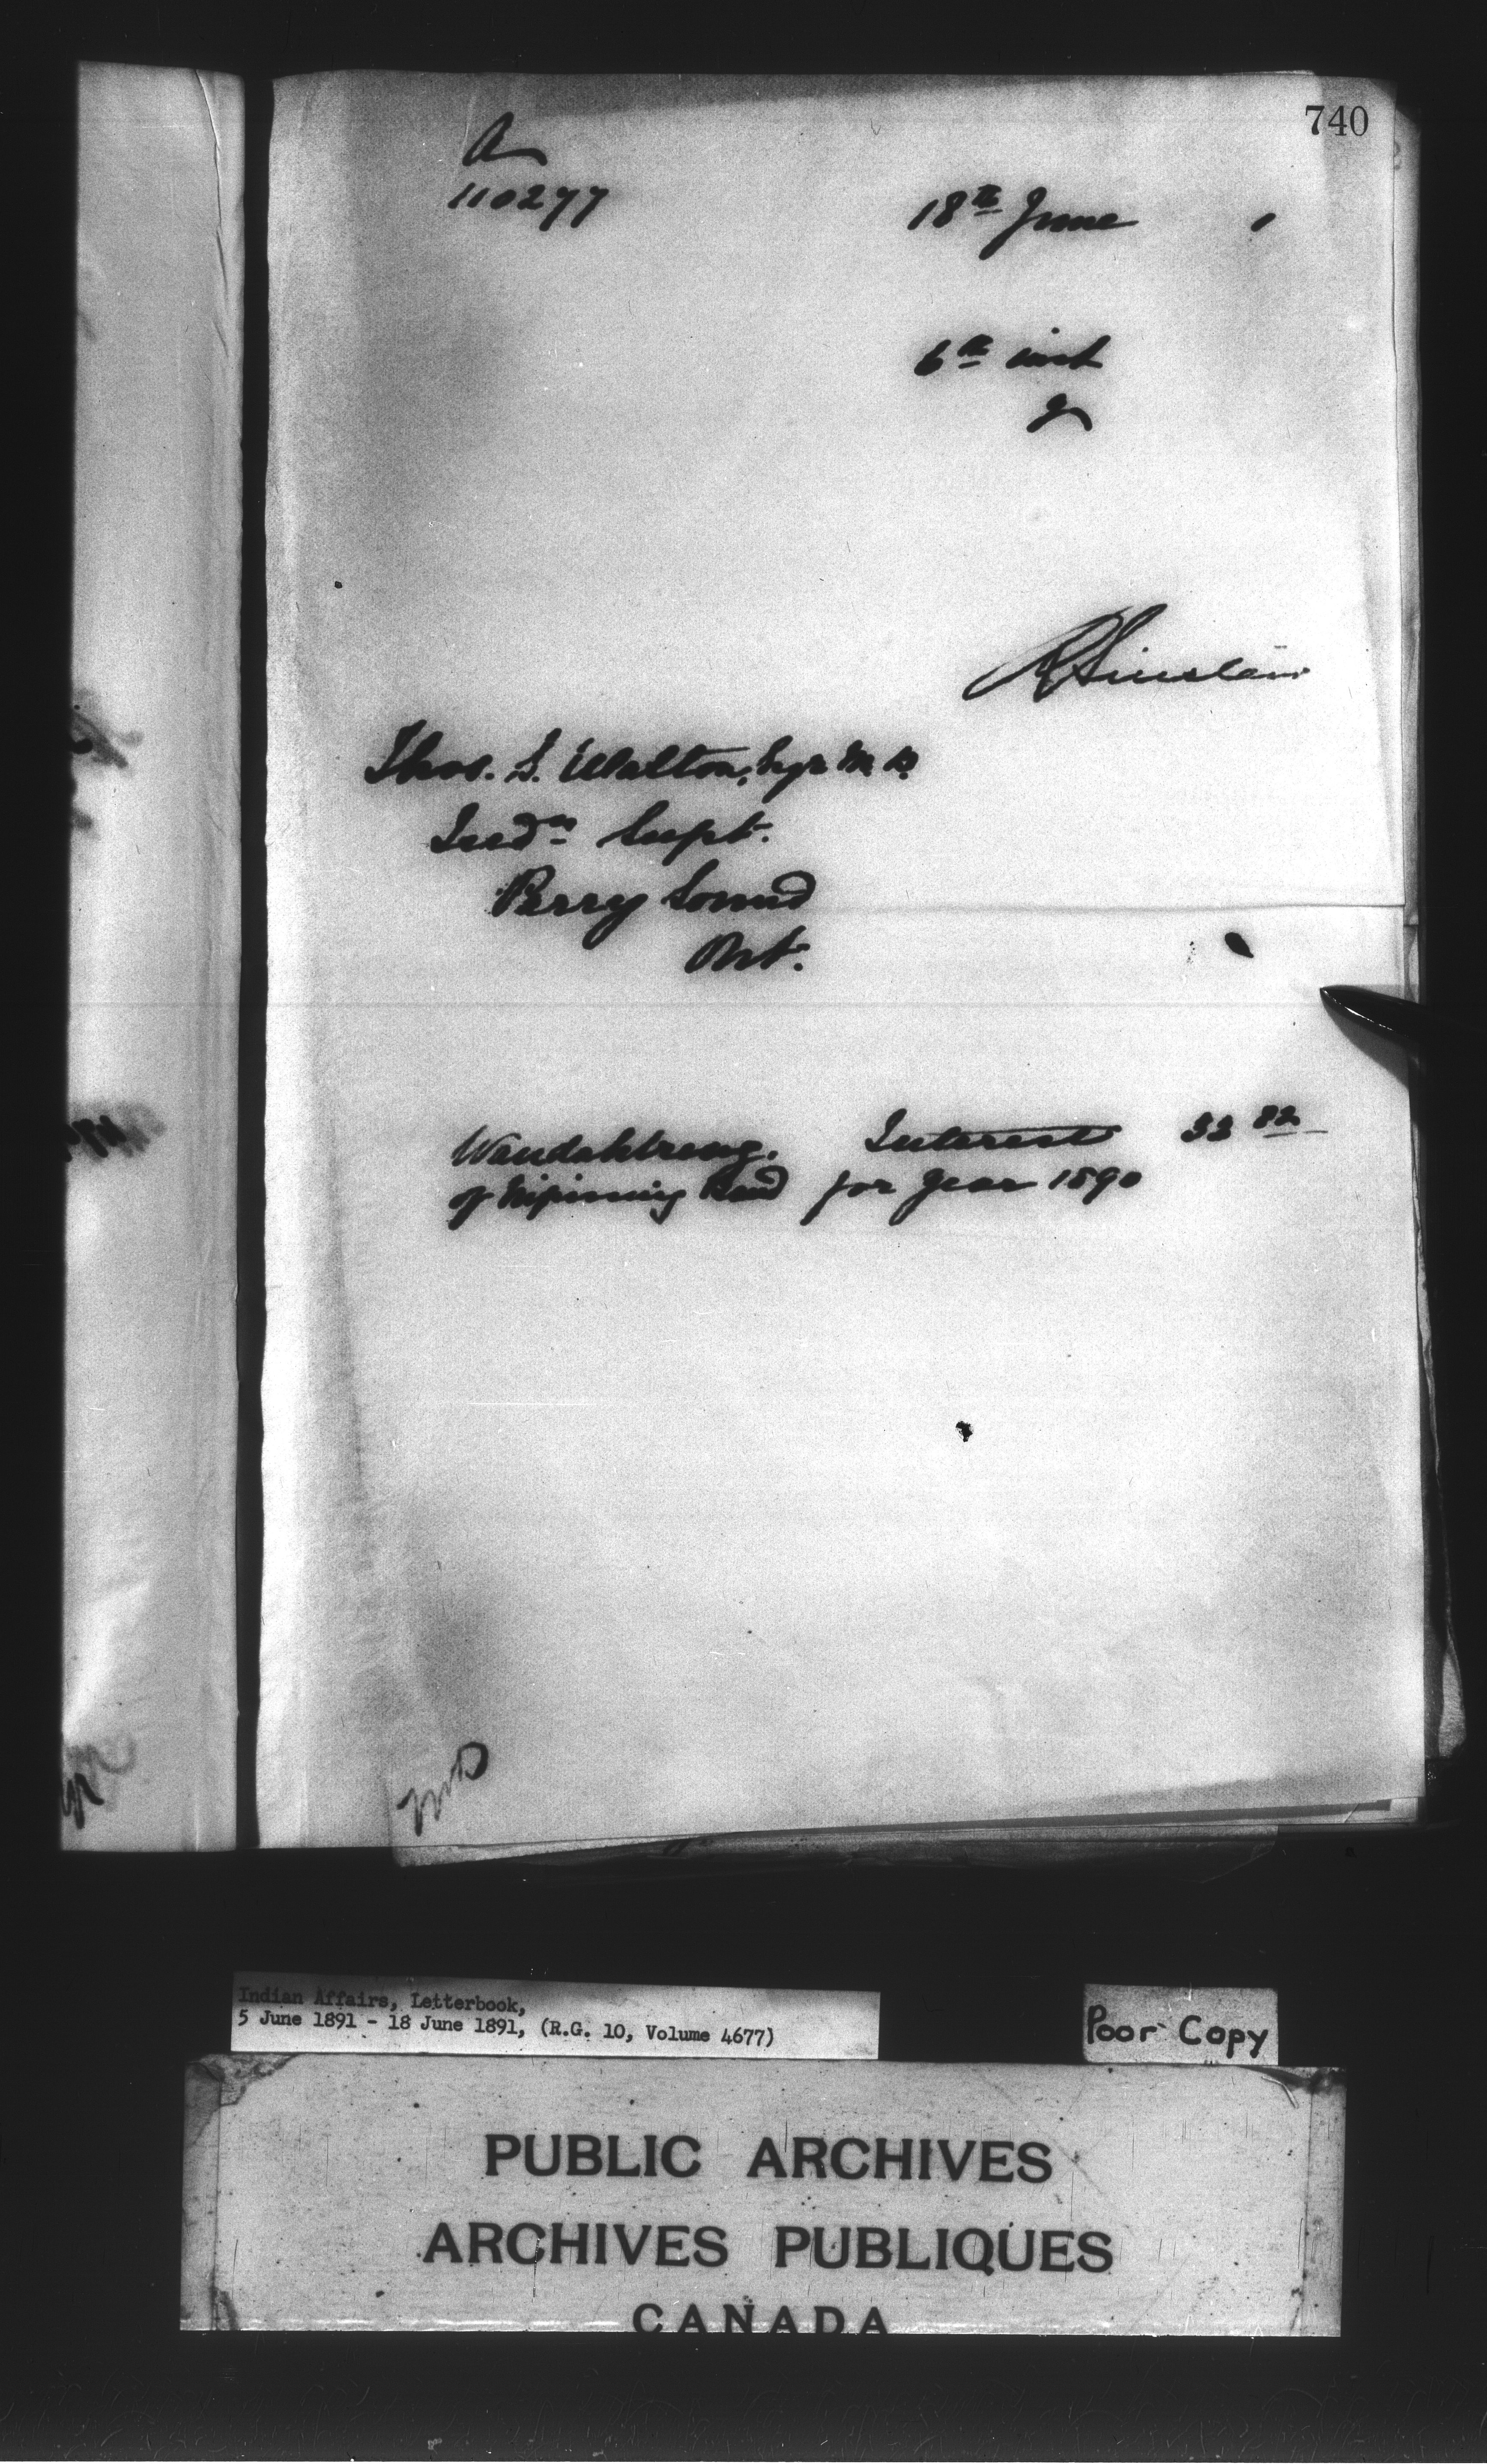 740
A
110277
18th June 1
6th inst
R Sinclair
Thos. S. Walton, Esqr M.D.
Indn Supt.
Parry Sound
Ont.
Interest 33 82
of Nipissing Band for year 1890
Indian Affairs, Letterbook,
5 June 1891 - 18 June 1891, (R.G. 10, Volume 4677)
Poor Copy
PUBLIC ARCHIVES
ARCHIVES PUBLIQUES
CANADA